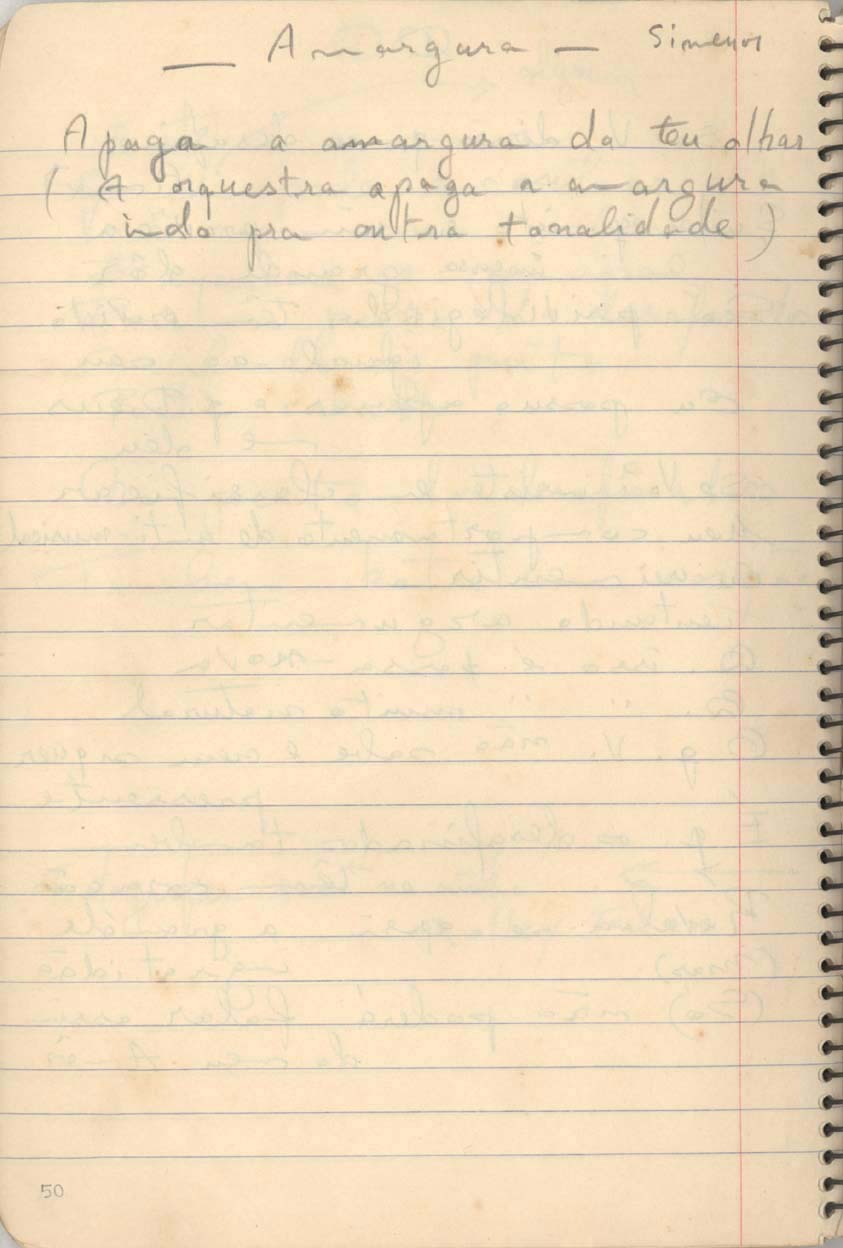 — Amargura — Simenon
Apaga a amargura do teu olhar
( A orquestra apaga a amargura
indo pra outra tonalidade )
50